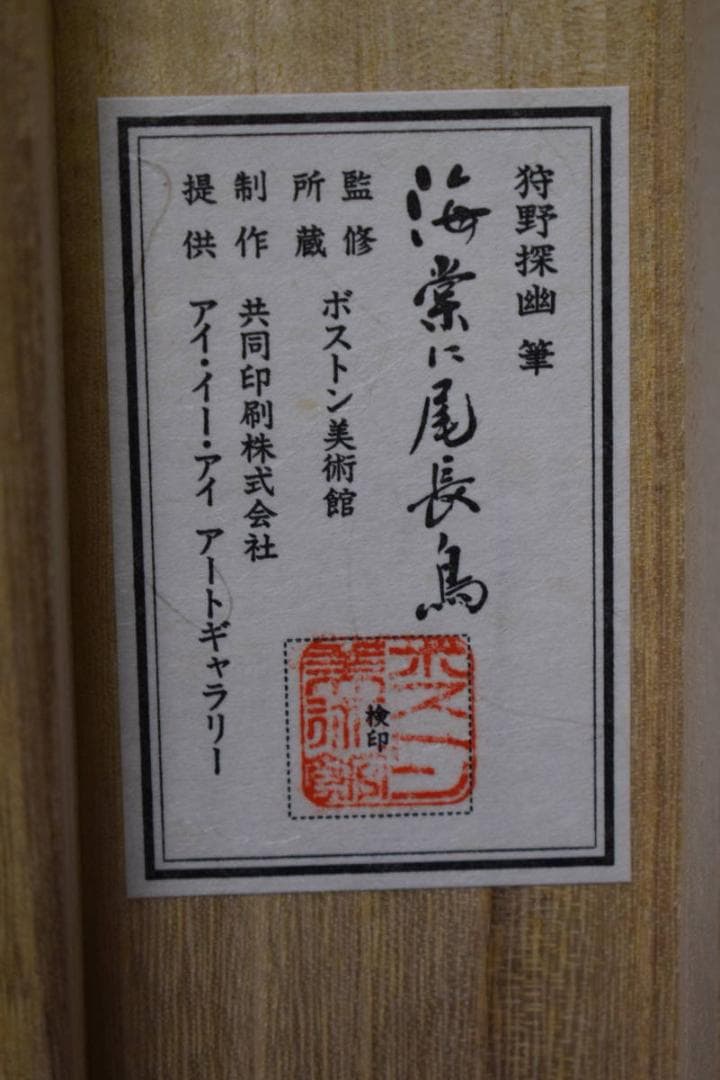 狩野探幽 筆
海棠に尾長鳥
監修
所蔵
ボストン美術館
制作 共同印刷株式会社
提供 アイ・イー・アイ アートギャラリー
検印
ボストン
美術館